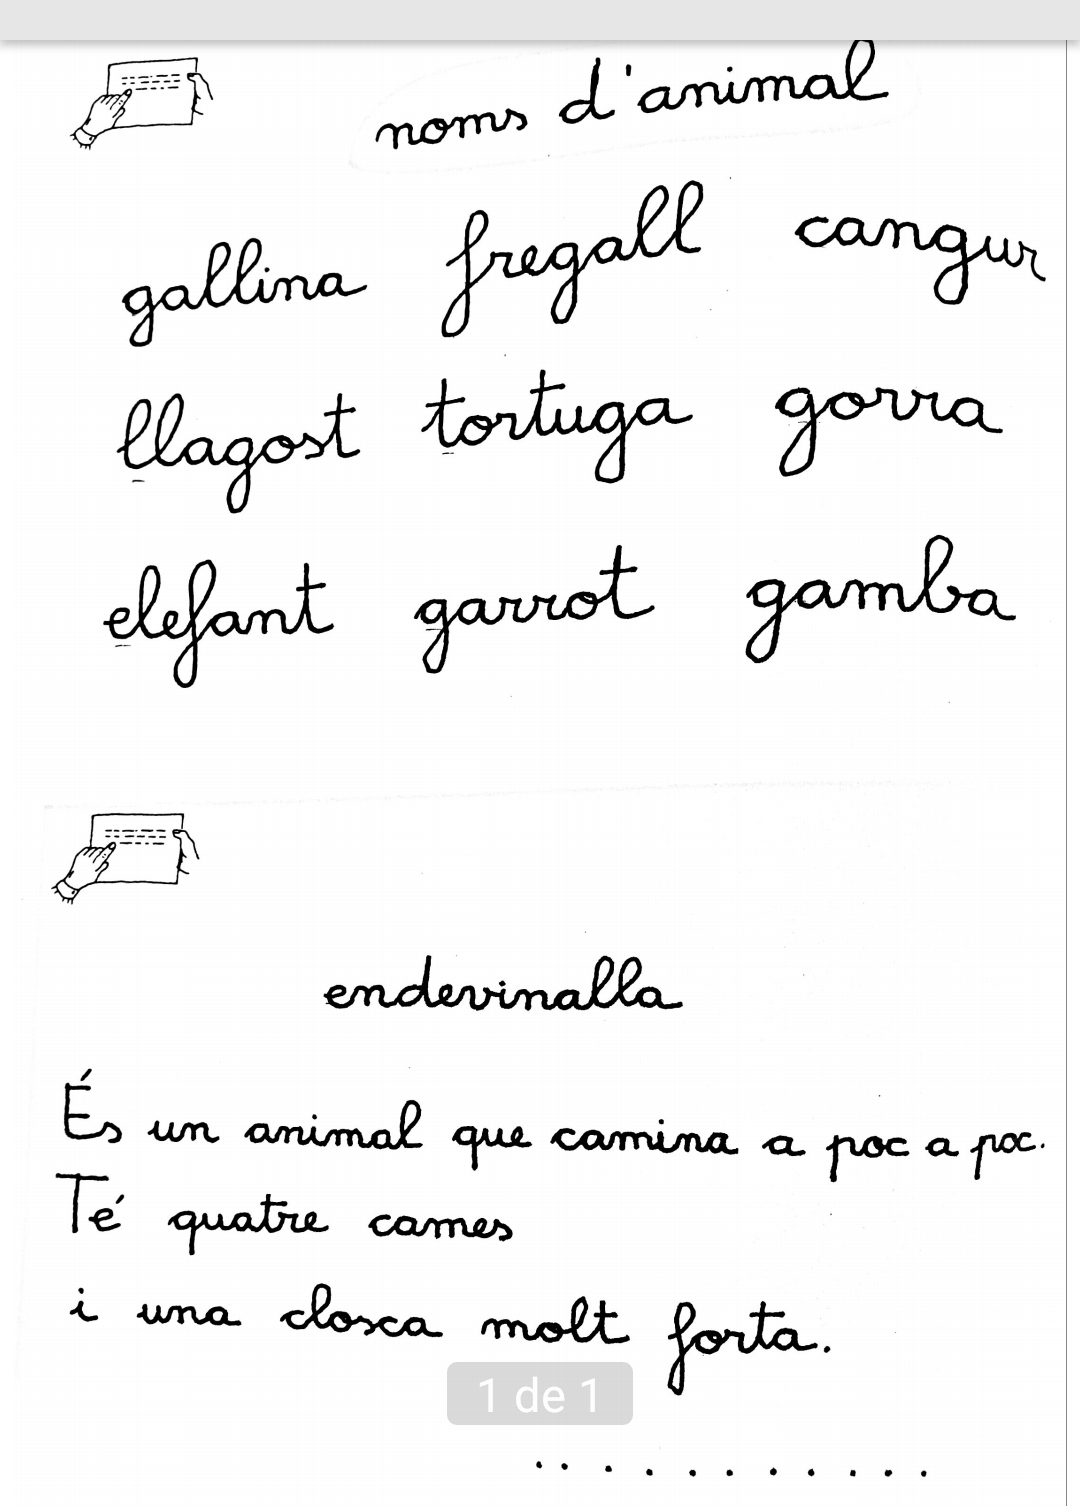 noms d'animal
gallina fregall cangur
llagost tortuga gorra
elefant garrot gamba
endevinalla
És un animal que camina a poc a poc.
Té quatre cames
i una closca molt forta.
1 de 1
. . . . . . . . . . .